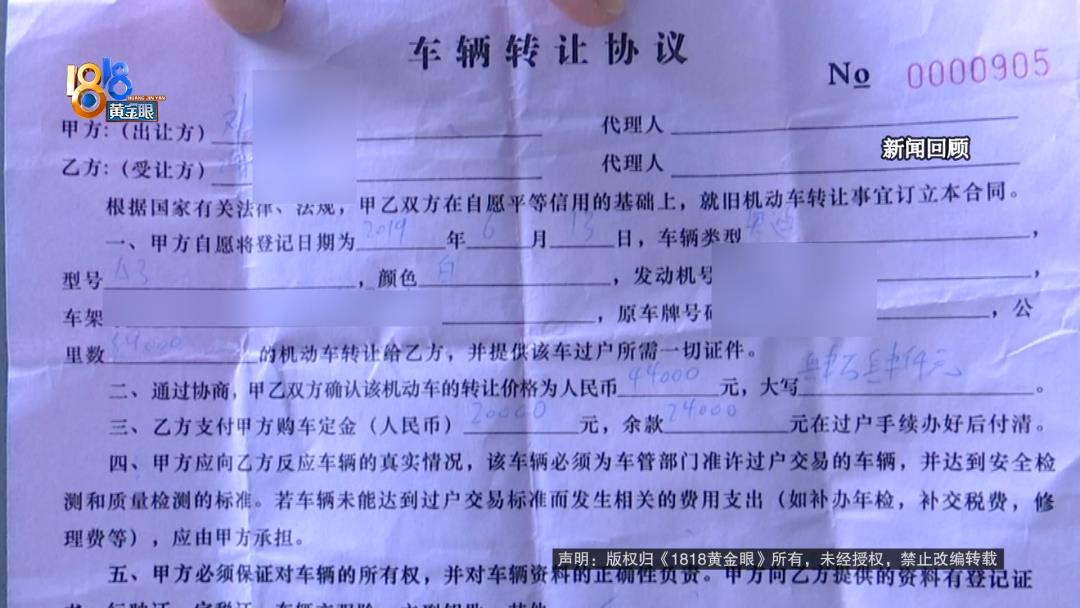 车辆转让协议
No 0000905
1818
HUANG JIN YAN
黄金眼
甲方：（出让方） 代理人
新闻回顾
乙方：（受让方） 代理人
根据国家有关法律、法规，甲乙双方在自愿平等信用的基础上，就旧机动车转让事宜订立本合同。
一、甲方自愿将登记日期为 2019 年 6 月 13 日，车辆类型 奥迪 ，
型号 A3 ，颜色 白 ，发动机号 ，
车架 ，原车牌号码 ，公
里数 的机动车转让给乙方，并提供该车过户所需一切证件。
二、通过协商，甲乙双方确认该机动车的转让价格为人民币 44000 元，大写 。
三、乙方支付甲方购车定金（人民币） 20000 元，余款 24000 元在过户手续办好后付清。
四、甲方应向乙方反应车辆的真实情况，该车辆必须为车管部门准许过户交易的车辆，并达到安全检
测和质量检测的标准。若车辆未能达到过户交易标准而发生相关的费用支出（如补办年检，补交税费，修
理费等），应由甲方承担。
声明：版权归《1818黄金眼》所有，未经授权，禁止改编转载
五、甲方必须保证对车辆的所有权，并对车辆资料的正确性负责。甲方向乙方提供的资料有登记证